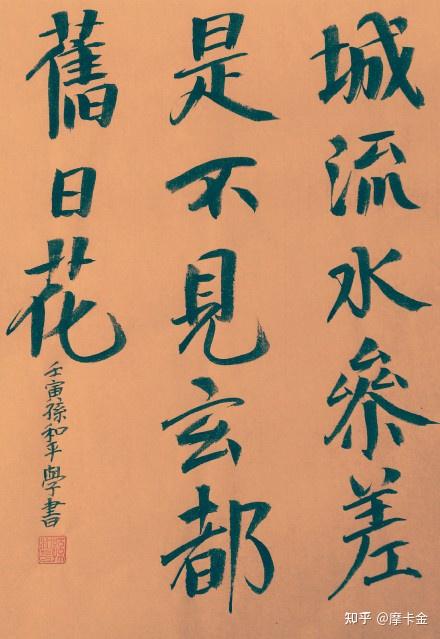 城流水參差
是不見玄都
舊日花
壬寅孫和平學書
知乎 @摩卡金